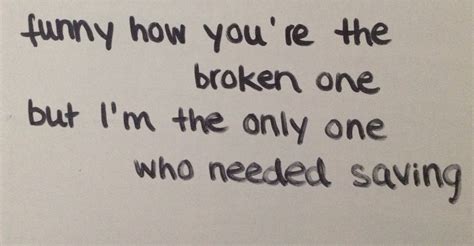 funny how you're the
broken one
but I'm the only one
who needed saving